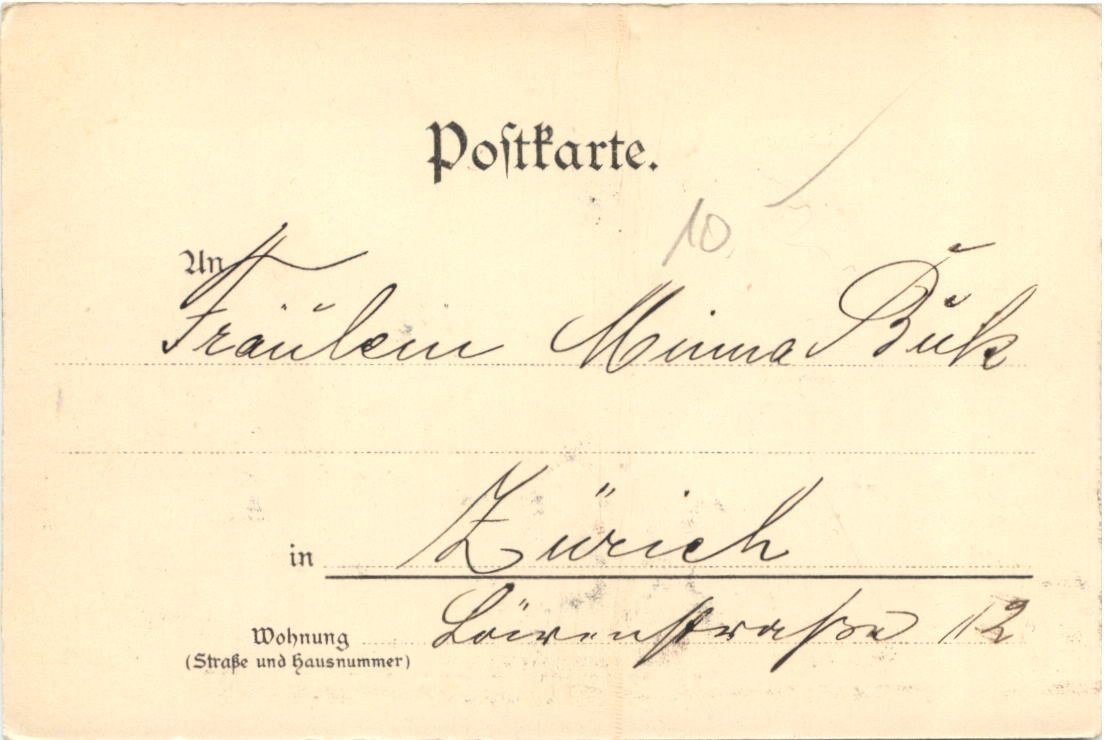 Postkarte.
10
An
Fräulein Minna Buk
in Zürich
Wohnung Löwenstraße 12
(Straße und Hausnummer)